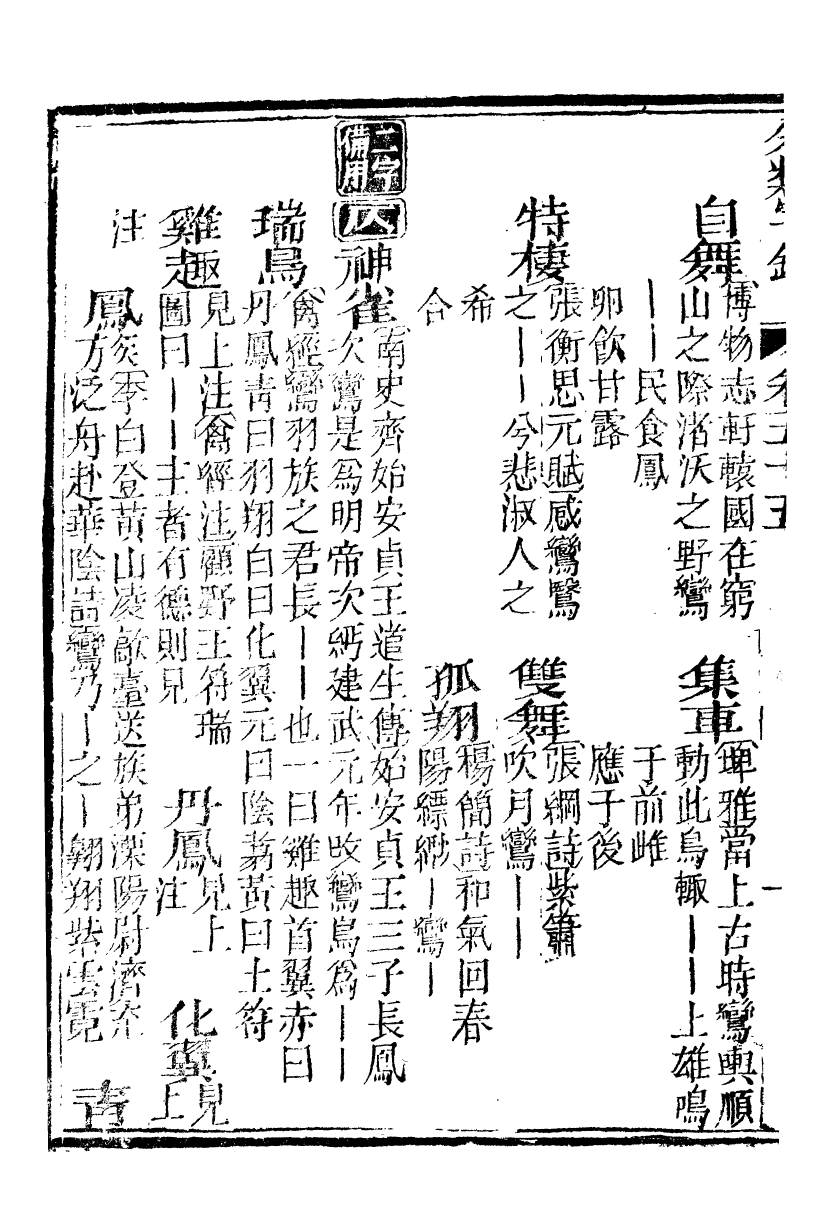 分類字錦 卷五十五
自舞
博物志軒轅國在窮
山之際渚沃之野鸞
——民食鳳
卵飲甘露
集車
埤雅當上古時鸞輿順
動此鳥輙——上雄鳴
于前雌
應于後
特棲
張衡思元賦感鸞鷖
之——兮悲淑人之
希
合
雙舞
張綱詩紫簫
吹月鸞——
孤翔
楊簡詩和氣回春
陽縹緲—鸞—
二字備用
仄
神雀
南史齊始安貞王道生傳始安貞王三子長鳳
次鸞是爲明帝次緬建武元年改鸞鳥爲——
瑞鳥
禽經鸞羽族之君長——也一曰雞趣首翼赤曰
丹鳳青曰羽翔白曰化翼元曰陰翥黃曰土符
雞趣
見上注禽經注顧野王符瑞
奚趣
圖曰——王者有德則見
丹鳳
見上
注
化翼
見
上
注
青
鳳
李白登黃山凌歊臺送族弟溧陽尉濟充
方泛舟赴華陰詩鸞乃—之—翱翔紫雲霓